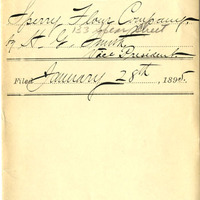 Sperry Flour Company.
133 Spear Street
by H. G. Smith
Vice President.
Filed January 28th, 1895.